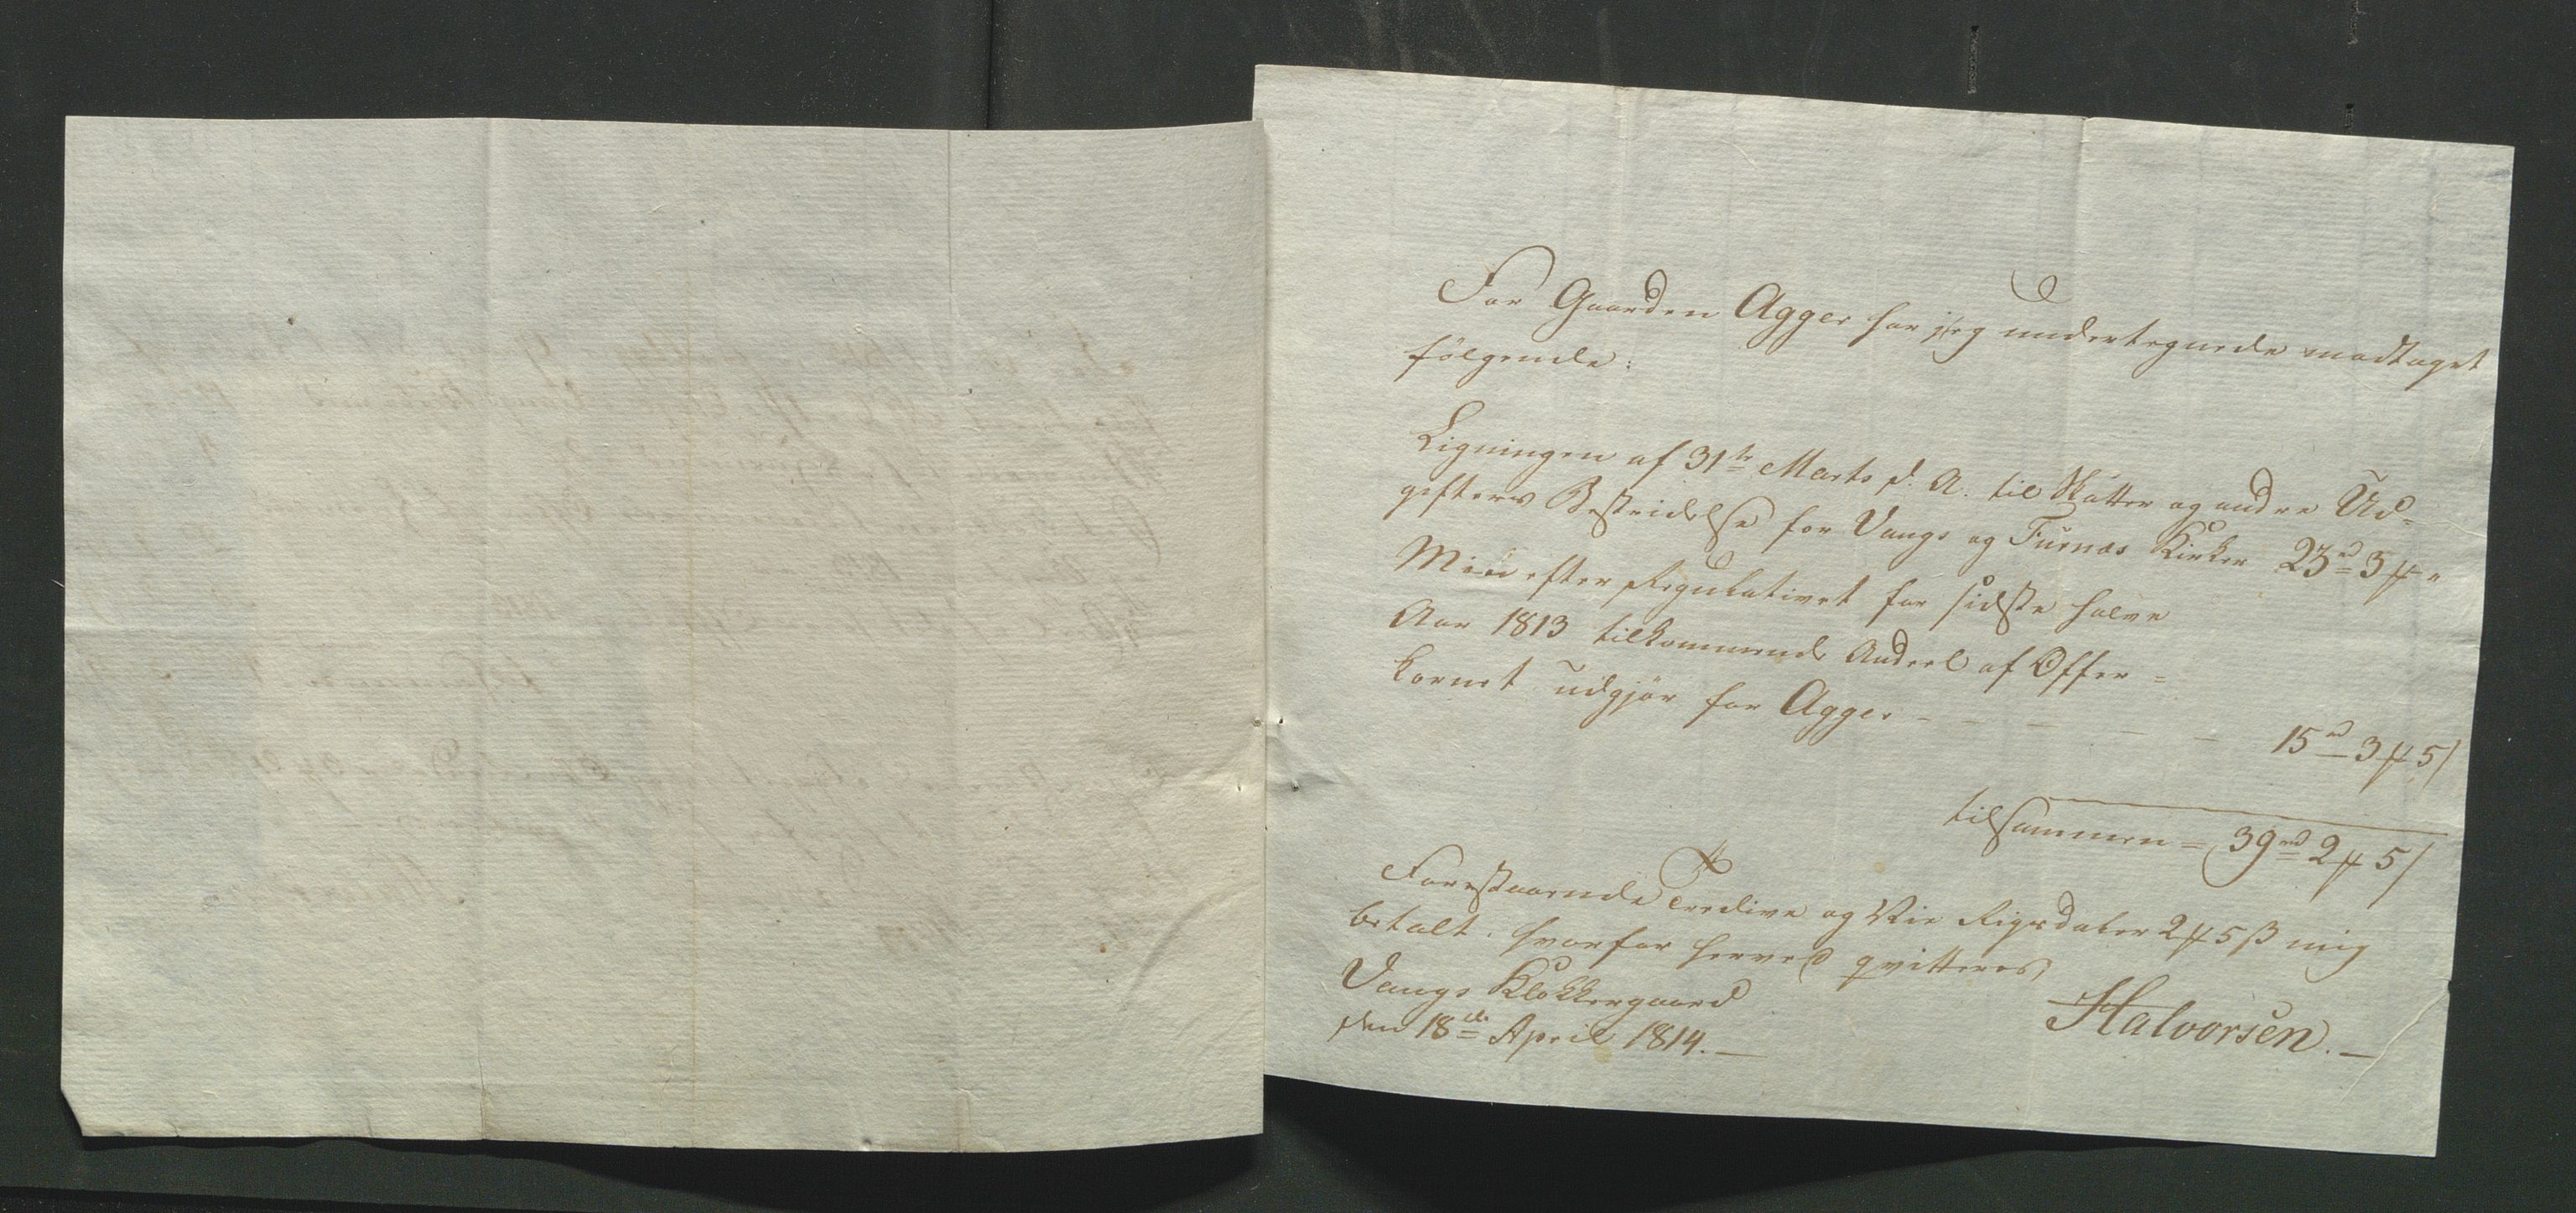 For Gaarden Agger har jeg undertegnede modtaget
følgende:
Ligningen af 31te Marts d. A. til Skatter og andre Ud-
gifters Bestridelse for Vangs og Furnæs Kirker 23rd 3 ℔ "
Min efter Regulativet for sidste halve
Aar 1813 tilkommende Andeel af Offer-
kornet udgjør for Agger - - - - - 15rd 3 ℔ 5/
tilsammen = 39rd 2 ℔ 5/
Forestaaende Tredive og Nie Rigsdaler 2 ℔ 5 ß mig
betalt, hvorfor herved qvitteres
Vangs Klokkergaard
den 18de April 1814. —
Halvorsen. —